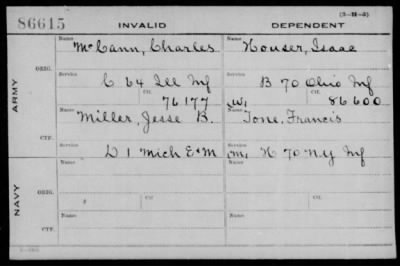 (3-H-5)
86615 INVALID DEPENDENT
Name Name
McCann, Charles Houser, Isaac
ORIG. Service Service
C 64 Ill Inf B 70 Ohio Inf
ARMY Ctf. 76177 W. Ctf. 86600
Name Name
Miller, Jesse B. Tone, Francis
CTF. Service Service
D 1 Mich E & M M. H 70 N.Y Inf
Name Name
ORIG. Service Service
NAVY
Name Name
CTF.